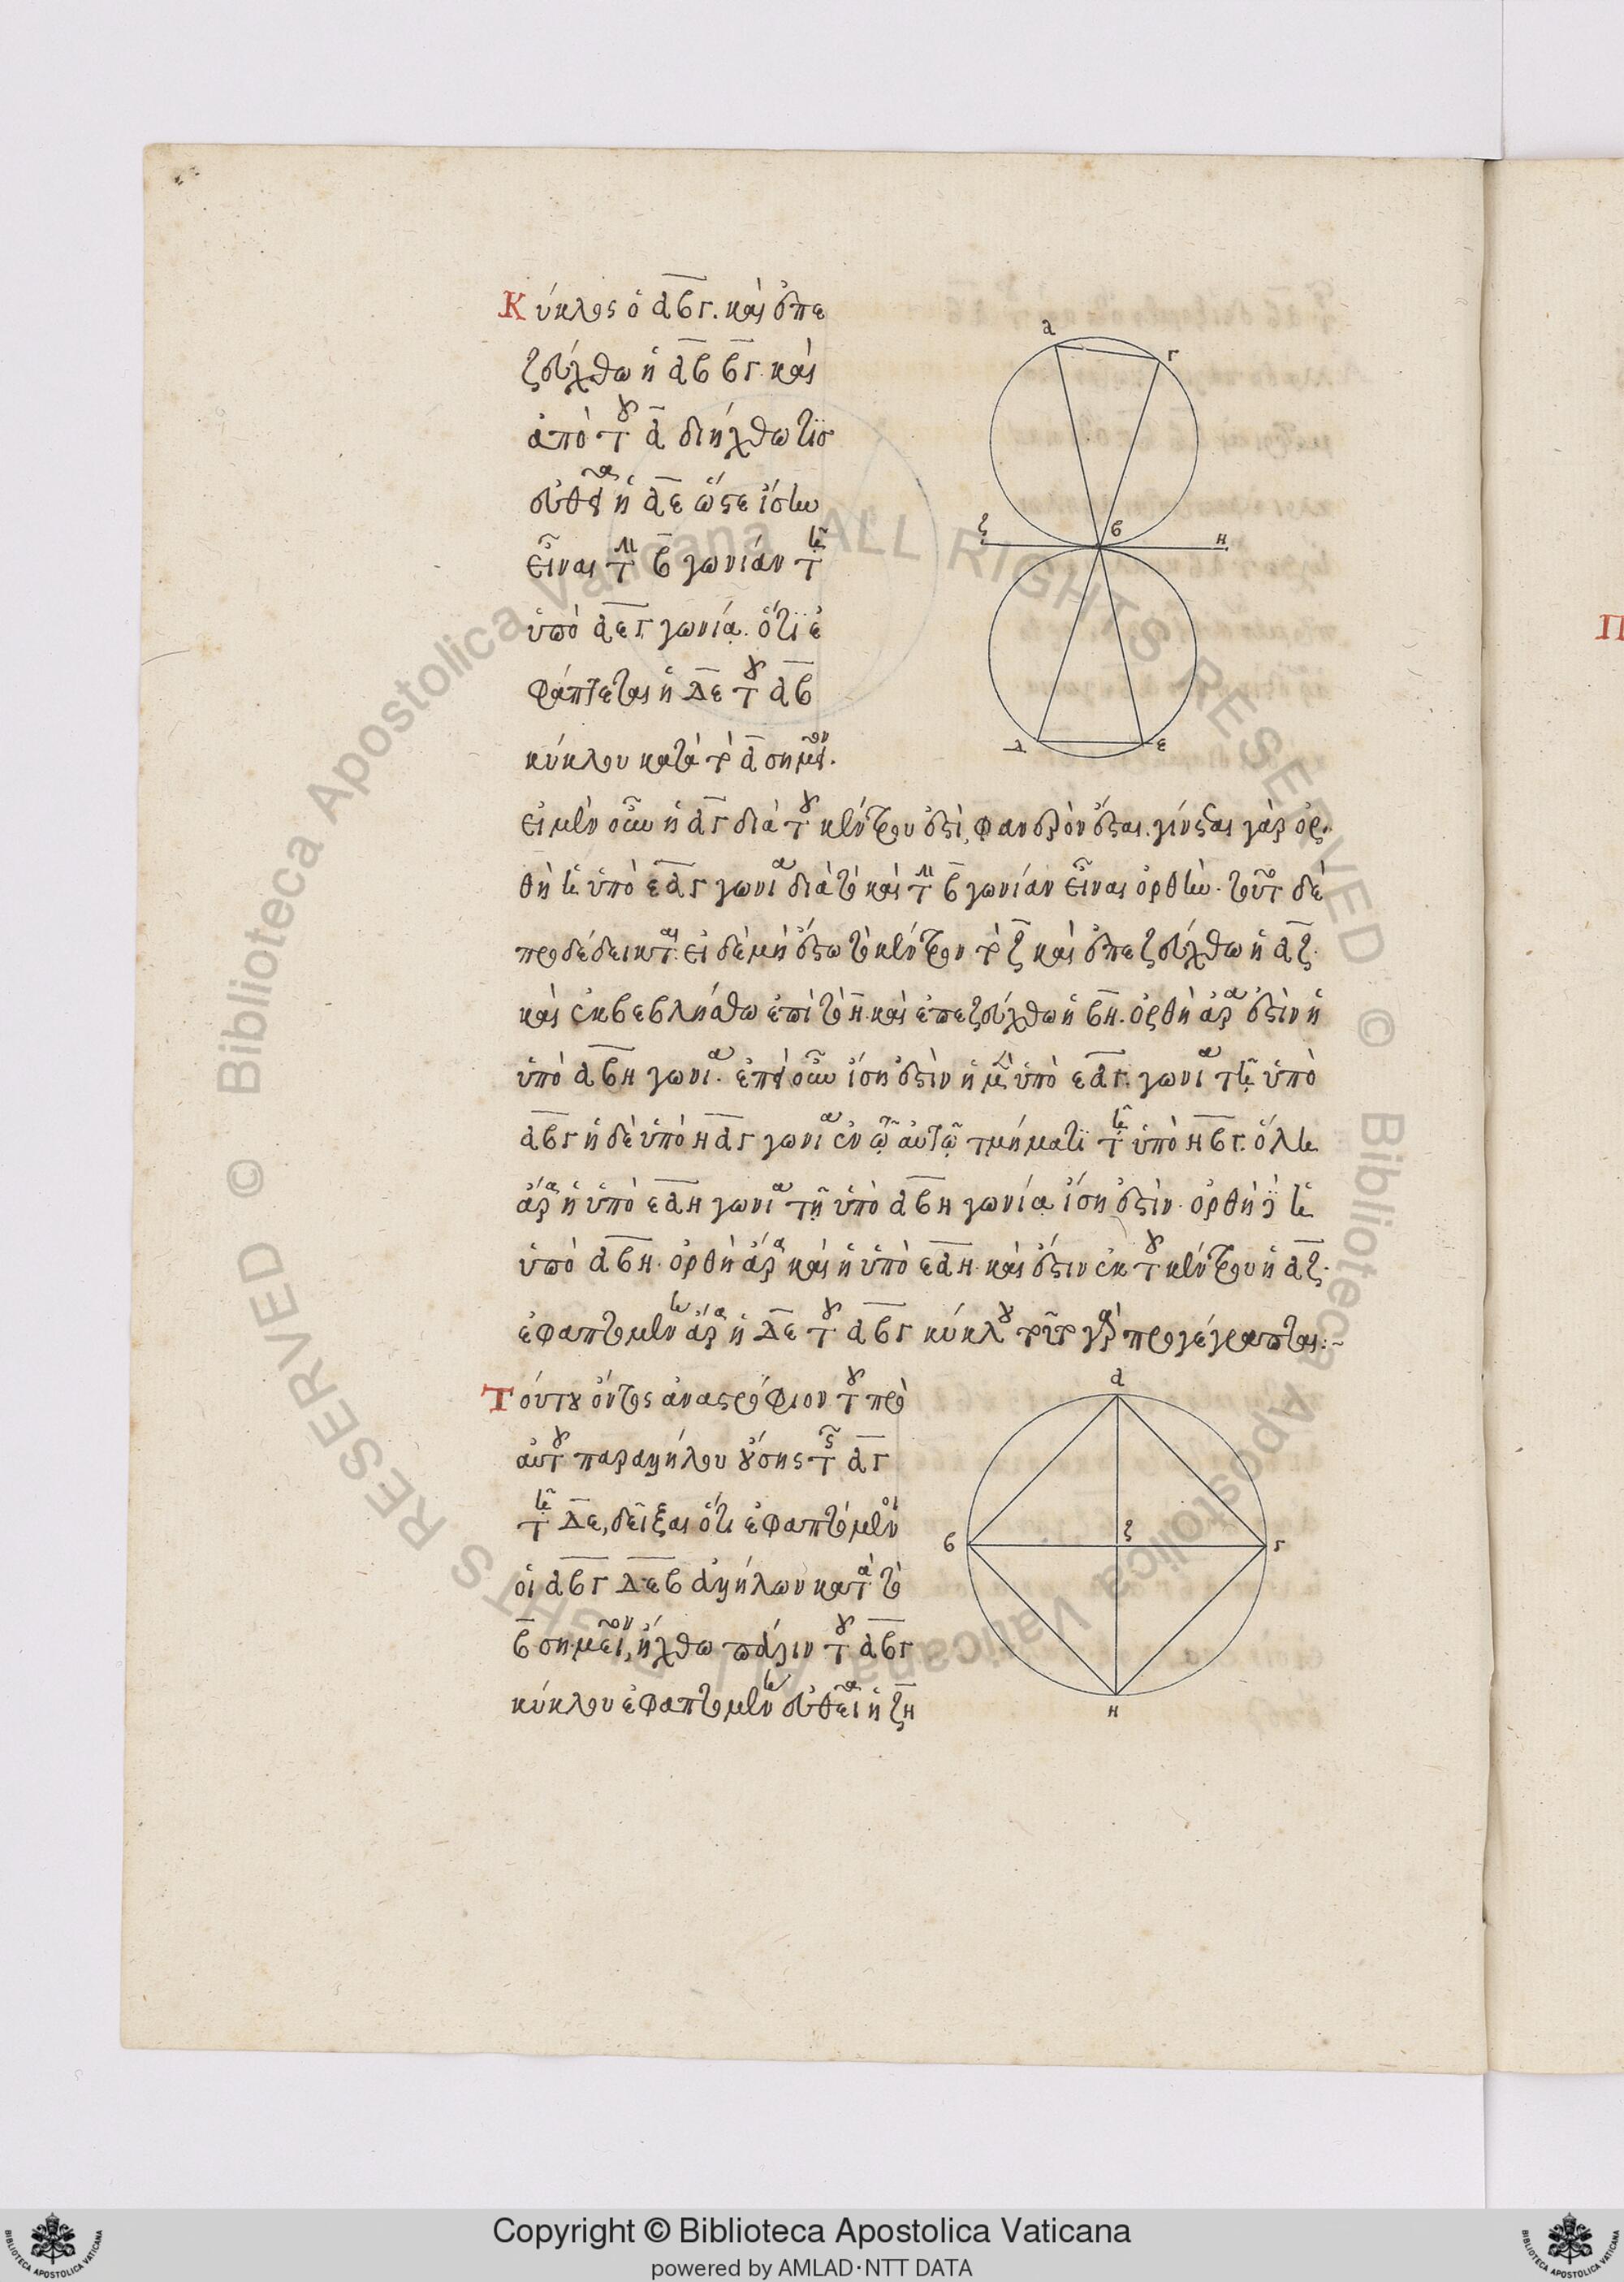 Κύκλος ὁ αβγ. καὶ ἐπε
ζεύχθω ἡ αβ βγ. καὶ
ἀπὸ τοῦ α διήχθω τὶσ
εὐθεῖα ἡ αε ὥστε ἴσην
εἶναι τὴν β γωνίαν τῆ
ὑπὸ αεγ γωνία. ὅτι ἐ
φάπτεται ἡ δε τοῦ αβ
κύκλου κατὰ τὸ α σημεῖον.
εἰ μὲν οὖν ἡ αγ διὰ τοῦ κέντρου ἐστὶ, φανερὸν ἔσται. γίνεται γὰρ ὀρ
θὴ ἡ ὑπὸ εαγ γωνία διὰ τὸ καὶ τὴν β γωνίαν εἶναι ὀρθήν. τοῦτο δὲ
προδέδεικται. εἰ δὲ μὴ ἔστω τὸ κέντρον τὸ ζ καὶ ἐπεζεύχθω ἡ αζ.
καὶ ἐκβεβλήσθω ἐπὶ τὸ η. καὶ ἐπεζεύχθω ἡ βη. ὀρθὴ ἄρα ἐστὶν ἡ
ὑπὸ αβη γωνία. ἐπεὶ οὖν ἴση ἐστὶν ἡ μὲν ὑπὸ εαγ. γωνία τῆ ὑπὸ
αβγ ἡ δὲ ὑπὸ ηαγ γωνία ἐν τῷ αὐτῷ τμήματι τῆ ὑπὸ ηβγ. ὅλη
ἄρα ἡ ὑπὸ εαη γωνία τῆ ὑπὸ αβη γωνία ἴση ἐστὶν. ὀρθὴ δὲ ἡ
ὑπὸ αβη. ὀρθὴ ἄρα καὶ ἡ ὑπὸ εαη. καὶ ἔστιν ἐκ τοῦ κέντρου ἡ αζ.
ἐφαπτομένη ἄρα ἡ δε τοῦ αβγ κύκλου τοῦτο γὰρ προγέγραπται:~
Τούτου ὄντος ἀναστρόφιον τοῦ πρὸ
αὐτοῦ παραλλήλου οὔσης τῆς αγ
τῆ δε, δεῖξαι ὅτι ἐφαπτόμενοι
οἱ αβγ δεβ ἀλλήλων κατὰ τὸ
β σημεῖον, ἤχθω πάλιν τοῦ αβγ
κύκλου ἐφαπτομένη εὐθεῖα ἡ ζη
α
γ
ζ
β
η
δ
ε
α
β
ζ
γ
η
Π
© Biblioteca Apostolica Vaticana ALL RIGHTS RESERVED © Biblioteca Apostolica Vaticana ALL RIGHTS RESERVED
Copyright © Biblioteca Apostolica Vaticana
powered by AMLAD·NTT DATA
BIBLIOTECA APOSTOLICA VATICANA
BIBLIOTECA APOSTOLICA VATICANA